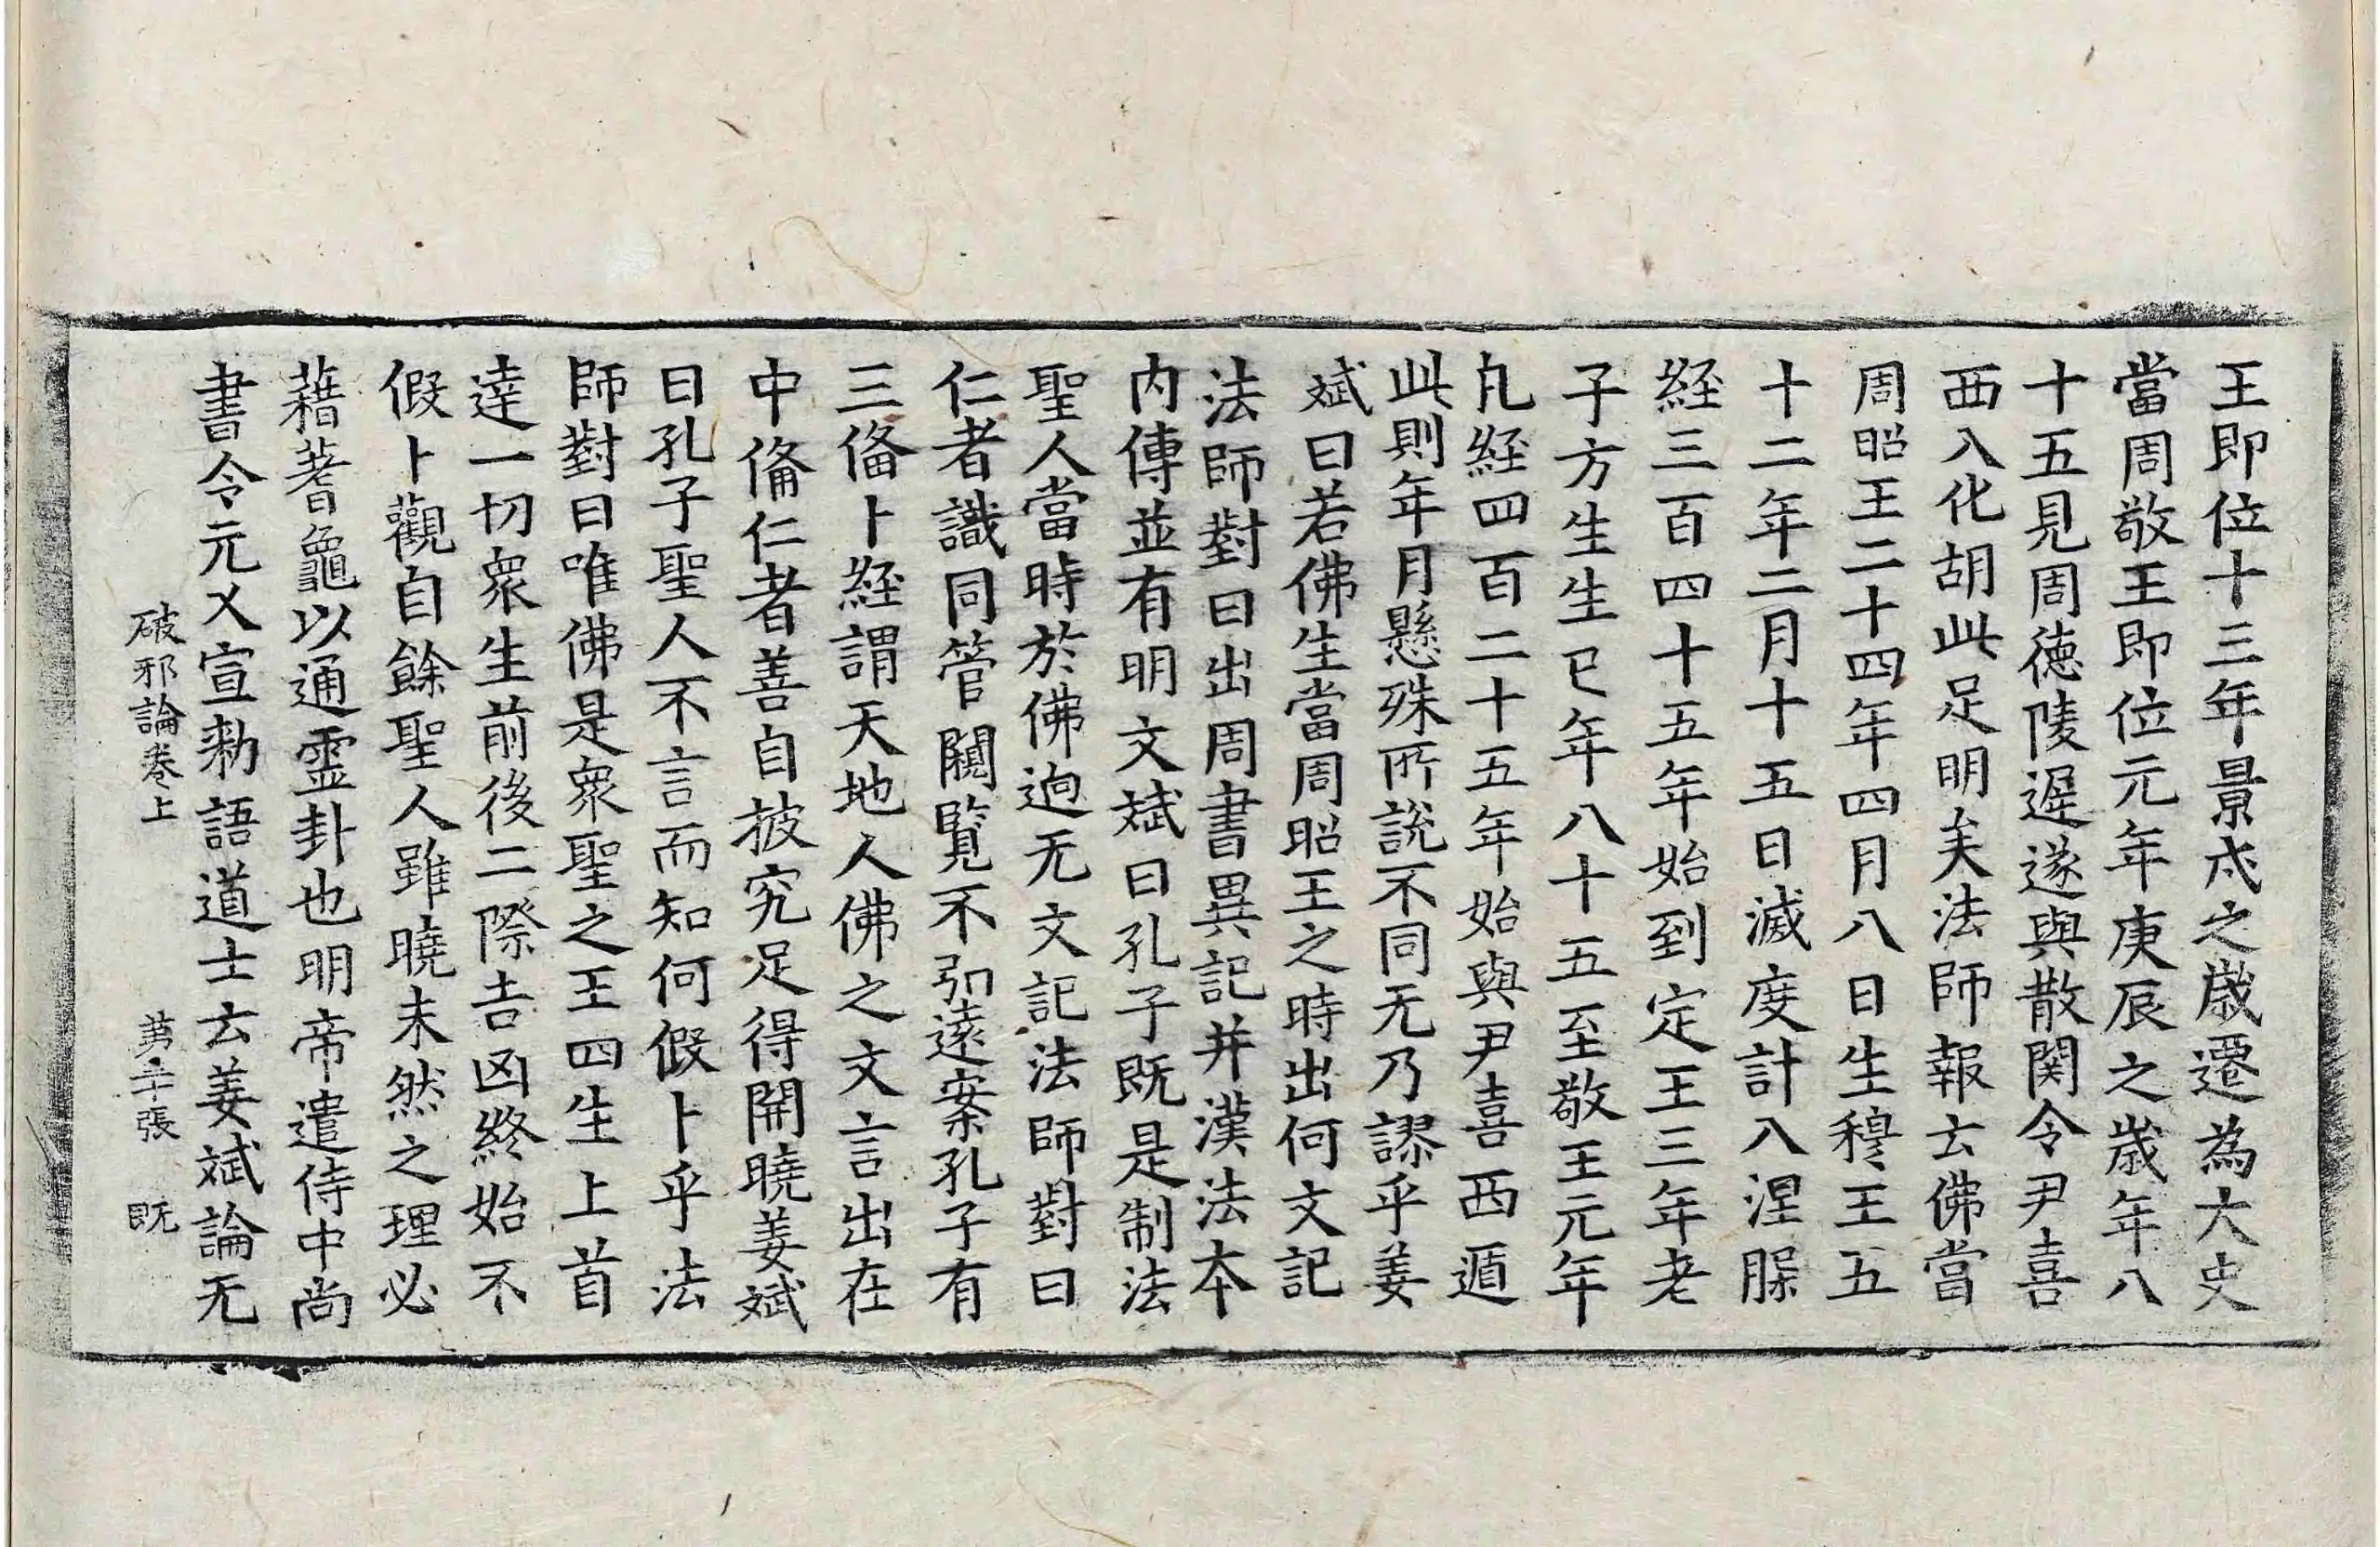 王即位十三年景戌之歲遷為大史
當周敬王即位元年庚辰之歲年八
十五見周德陵遲遂與散関令尹喜
西入化胡此足明矣法師報云佛當
周昭王二十四年四月八日生穆王五
十二年二月十五日滅度計入涅䏶
経三百四十五年始到定王三年老
子方生生已年八十五至敬王元年
凢経四百二十五年始與尹喜西遁
此則年月懸殊所說不同无乃謬乎姜
斌曰若佛生當周昭王之時出何文記
法師對曰出周書異記并漢法本
内傳並有明文斌曰孔子既是制法
聖人當時於佛逈无文記法師對曰
仁者識同管闚覽不弘遠案孔子有
三俻卜経謂天地人佛之文言出在
中俻仁者善自披究足得開曉姜斌
曰孔子聖人不言而知何假卜乎法
師對曰唯佛是衆聖之王四生上首
達一切衆生前後二際吉凶終始不
假卜觀自餘聖人雖曉未然之理必
藉蓍龜以通靈卦也明帝遣侍中尚
書令元乂宣勑語道士云姜斌論无
破邪論卷上 苐二十張 既